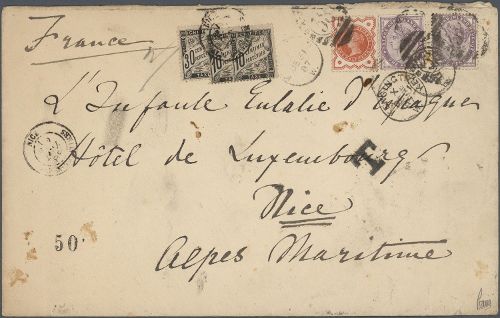 France
30 10 10
L'Infante Eulalie d'Espagne
Hôtel de Luxembourg
T
Nice
50'
Alpes Maritime